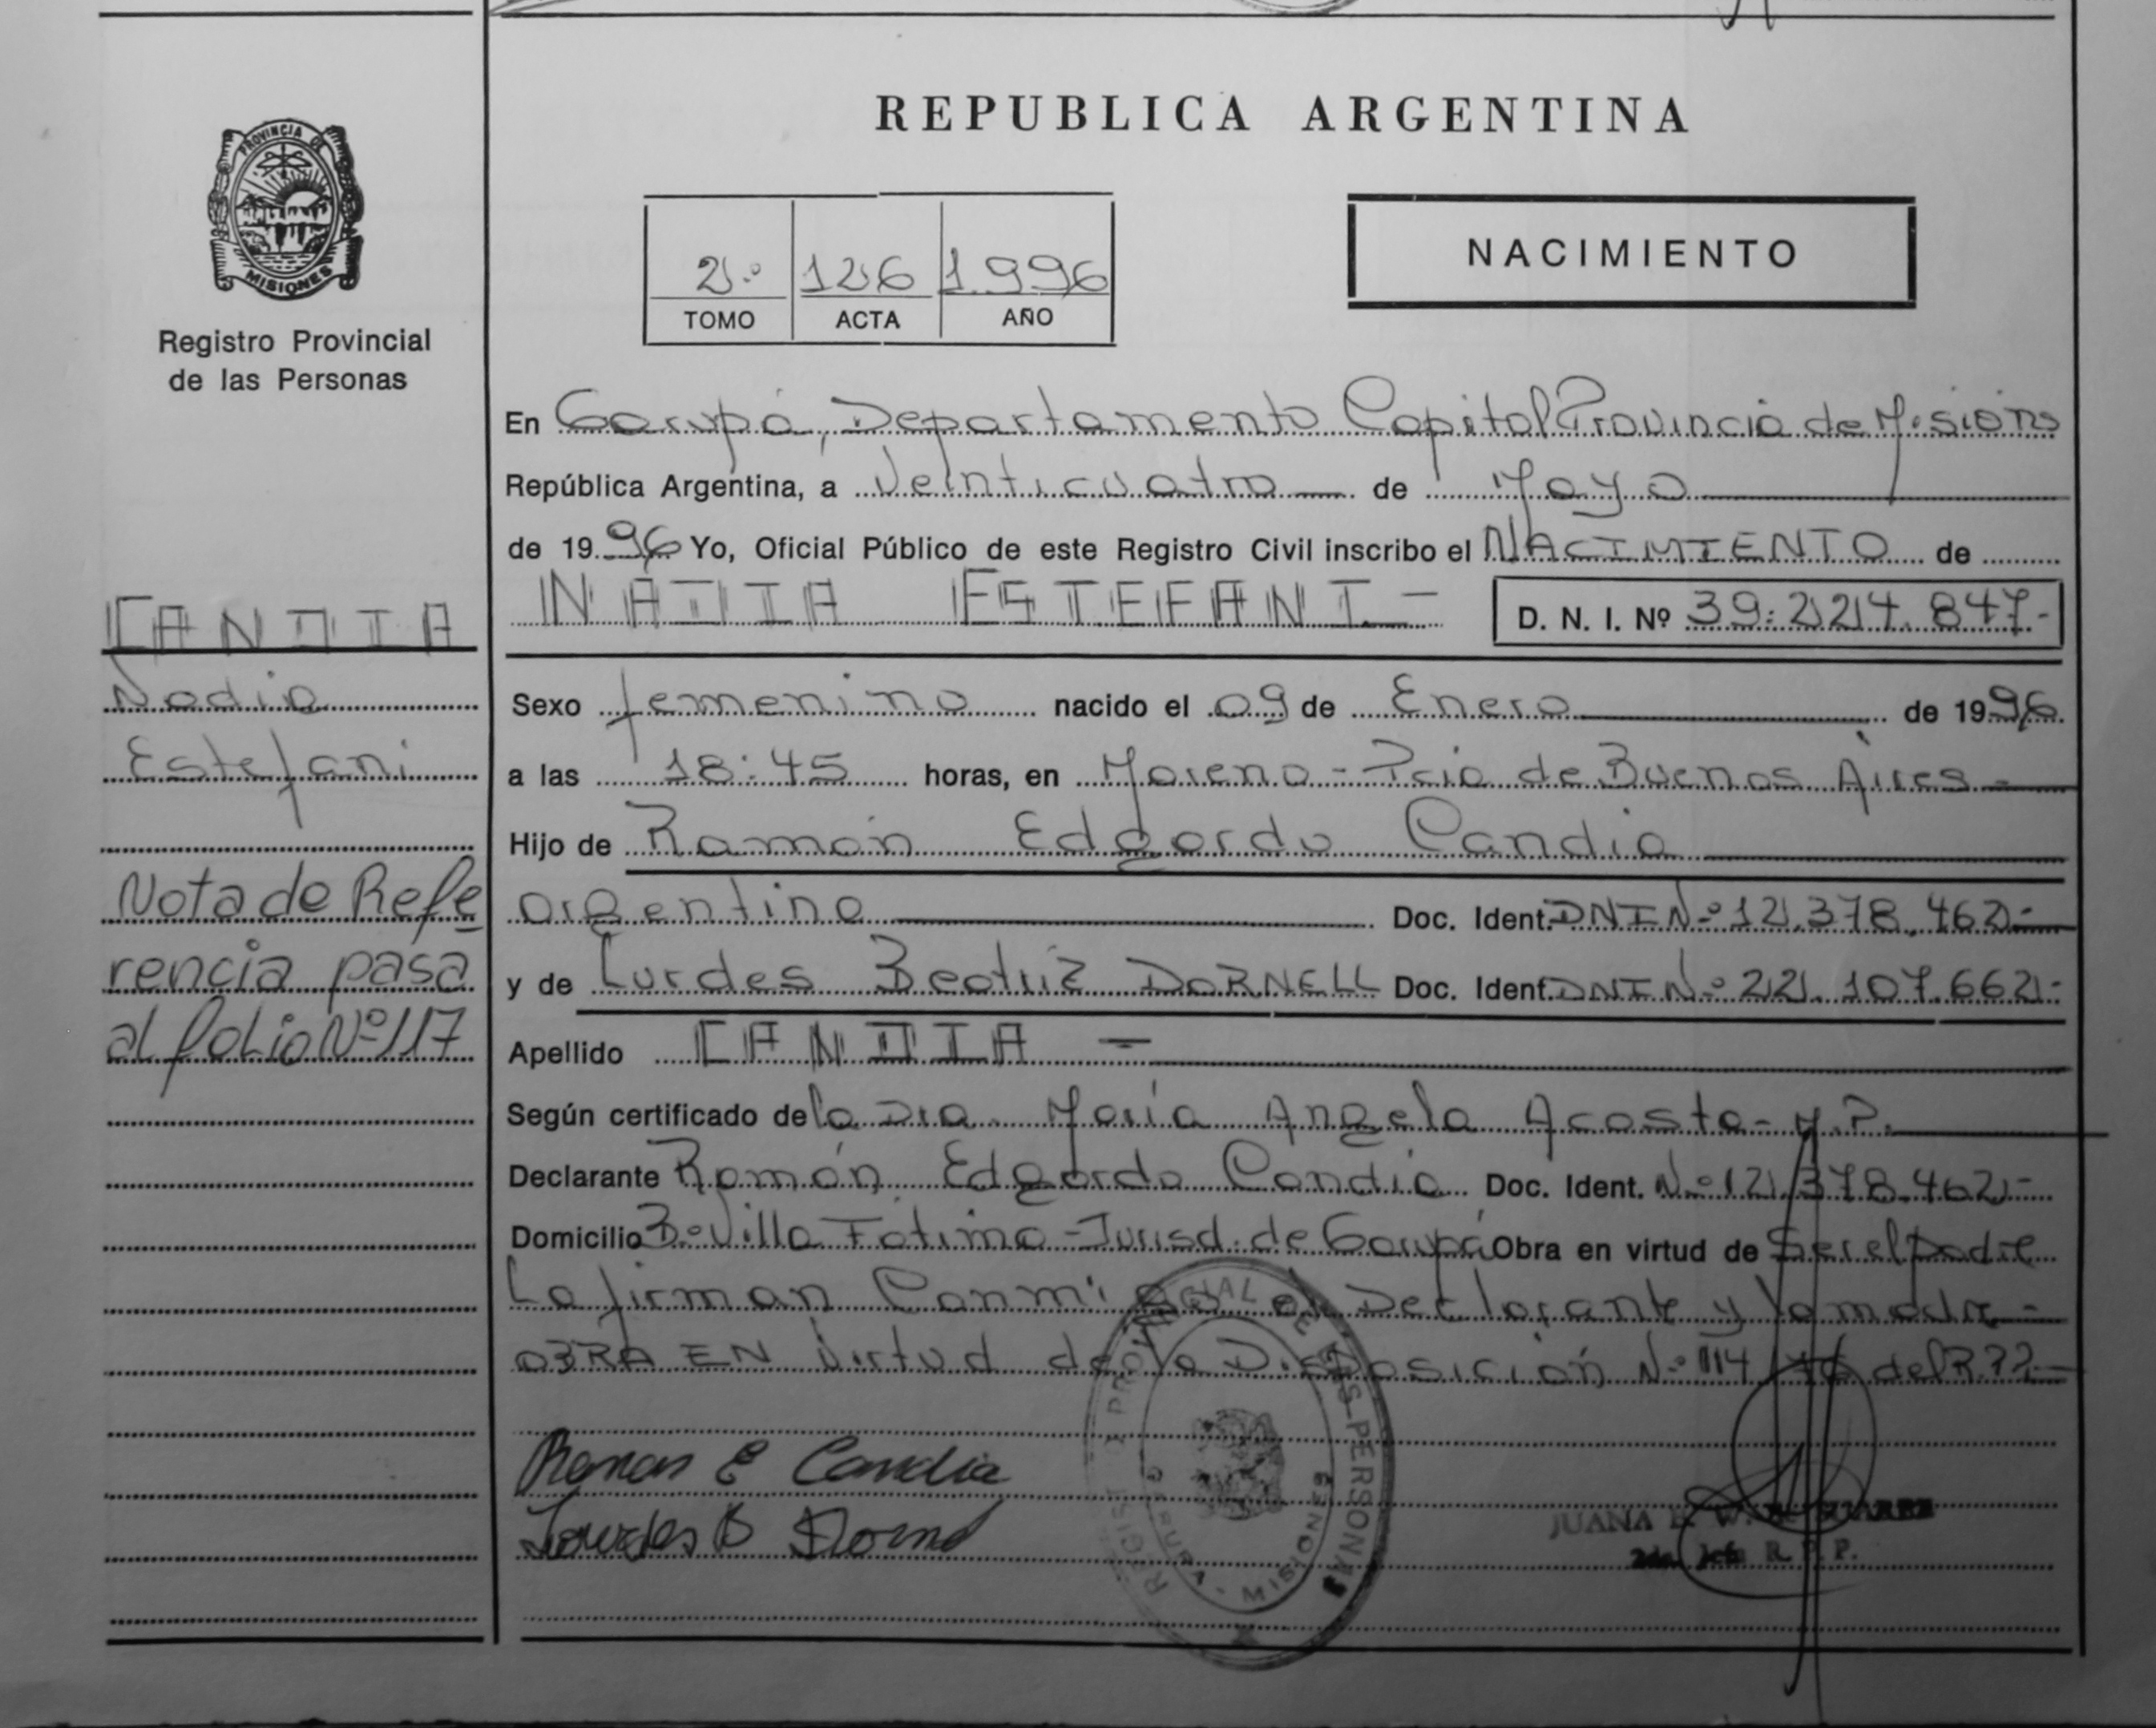 PROVINCIA DE
MISIONES
Registro Provincial
de las Personas
REPUBLICA ARGENTINA
2º 126 1.996
TOMO ACTA AÑO
NACIMIENTO
En Garupá, Departamento Capital Provincia de Misions
República Argentina, a Veinticuatro de Mayo
de 1996 Yo, Oficial Público de este Registro Civil inscribo el NACIMIENTO de
NADIA ESTEFANI -
D. N. I. Nº 39.224.847-
Sexo femenino nacido el 09 de Enero de 1996
a las 18:45 horas, en Moreno - Pcia de Buenos Aires -
Hijo de Ramón Edgardo Candia
argentino Doc. Ident. DNI Nº 12.378.462-
y de Lurdes Beatriz DORNELL Doc. Ident. DNI Nº 22.107.662-
Apellido CANDIA -
Según certificado de la Dra. María Angela Acosta - M.P.
Declarante Ramón Edgardo Candia Doc. Ident. Nº 12.378.462-
Domicilio Bº Villa Fátima - Jurisd. de Garupá Obra en virtud de Ser el padre
La firman Conmigo el Declarante y la madre -
OBRA EN Virtud de la Disposición Nº 114 del R.P.P.
Ramon E Candia
Lourdes B
JUANA
R. P. P.
CANDIA
Nadia
Estefani
Nota de Refe
rencia pasa
al folio Nº 117
REGISTRO PROVINCIAL DE LAS PERSONAS
GARUPA - MISIONES